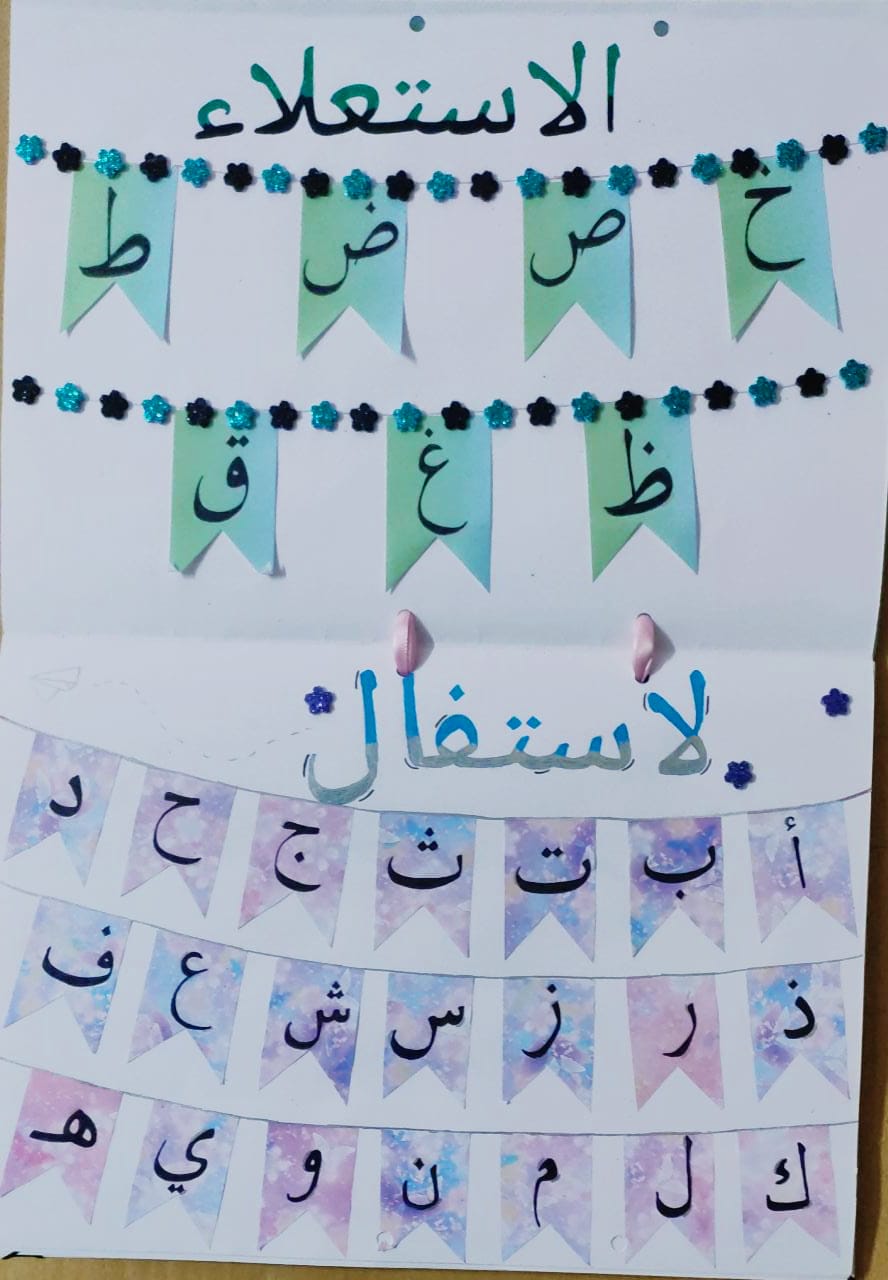 الاستعلاء
خ ص ض ط
ظ غ ق
لاستفال
أ ب ت ث ج ح د
ذ ر ز س ش ع ف
ك ل م ن و ي هـ